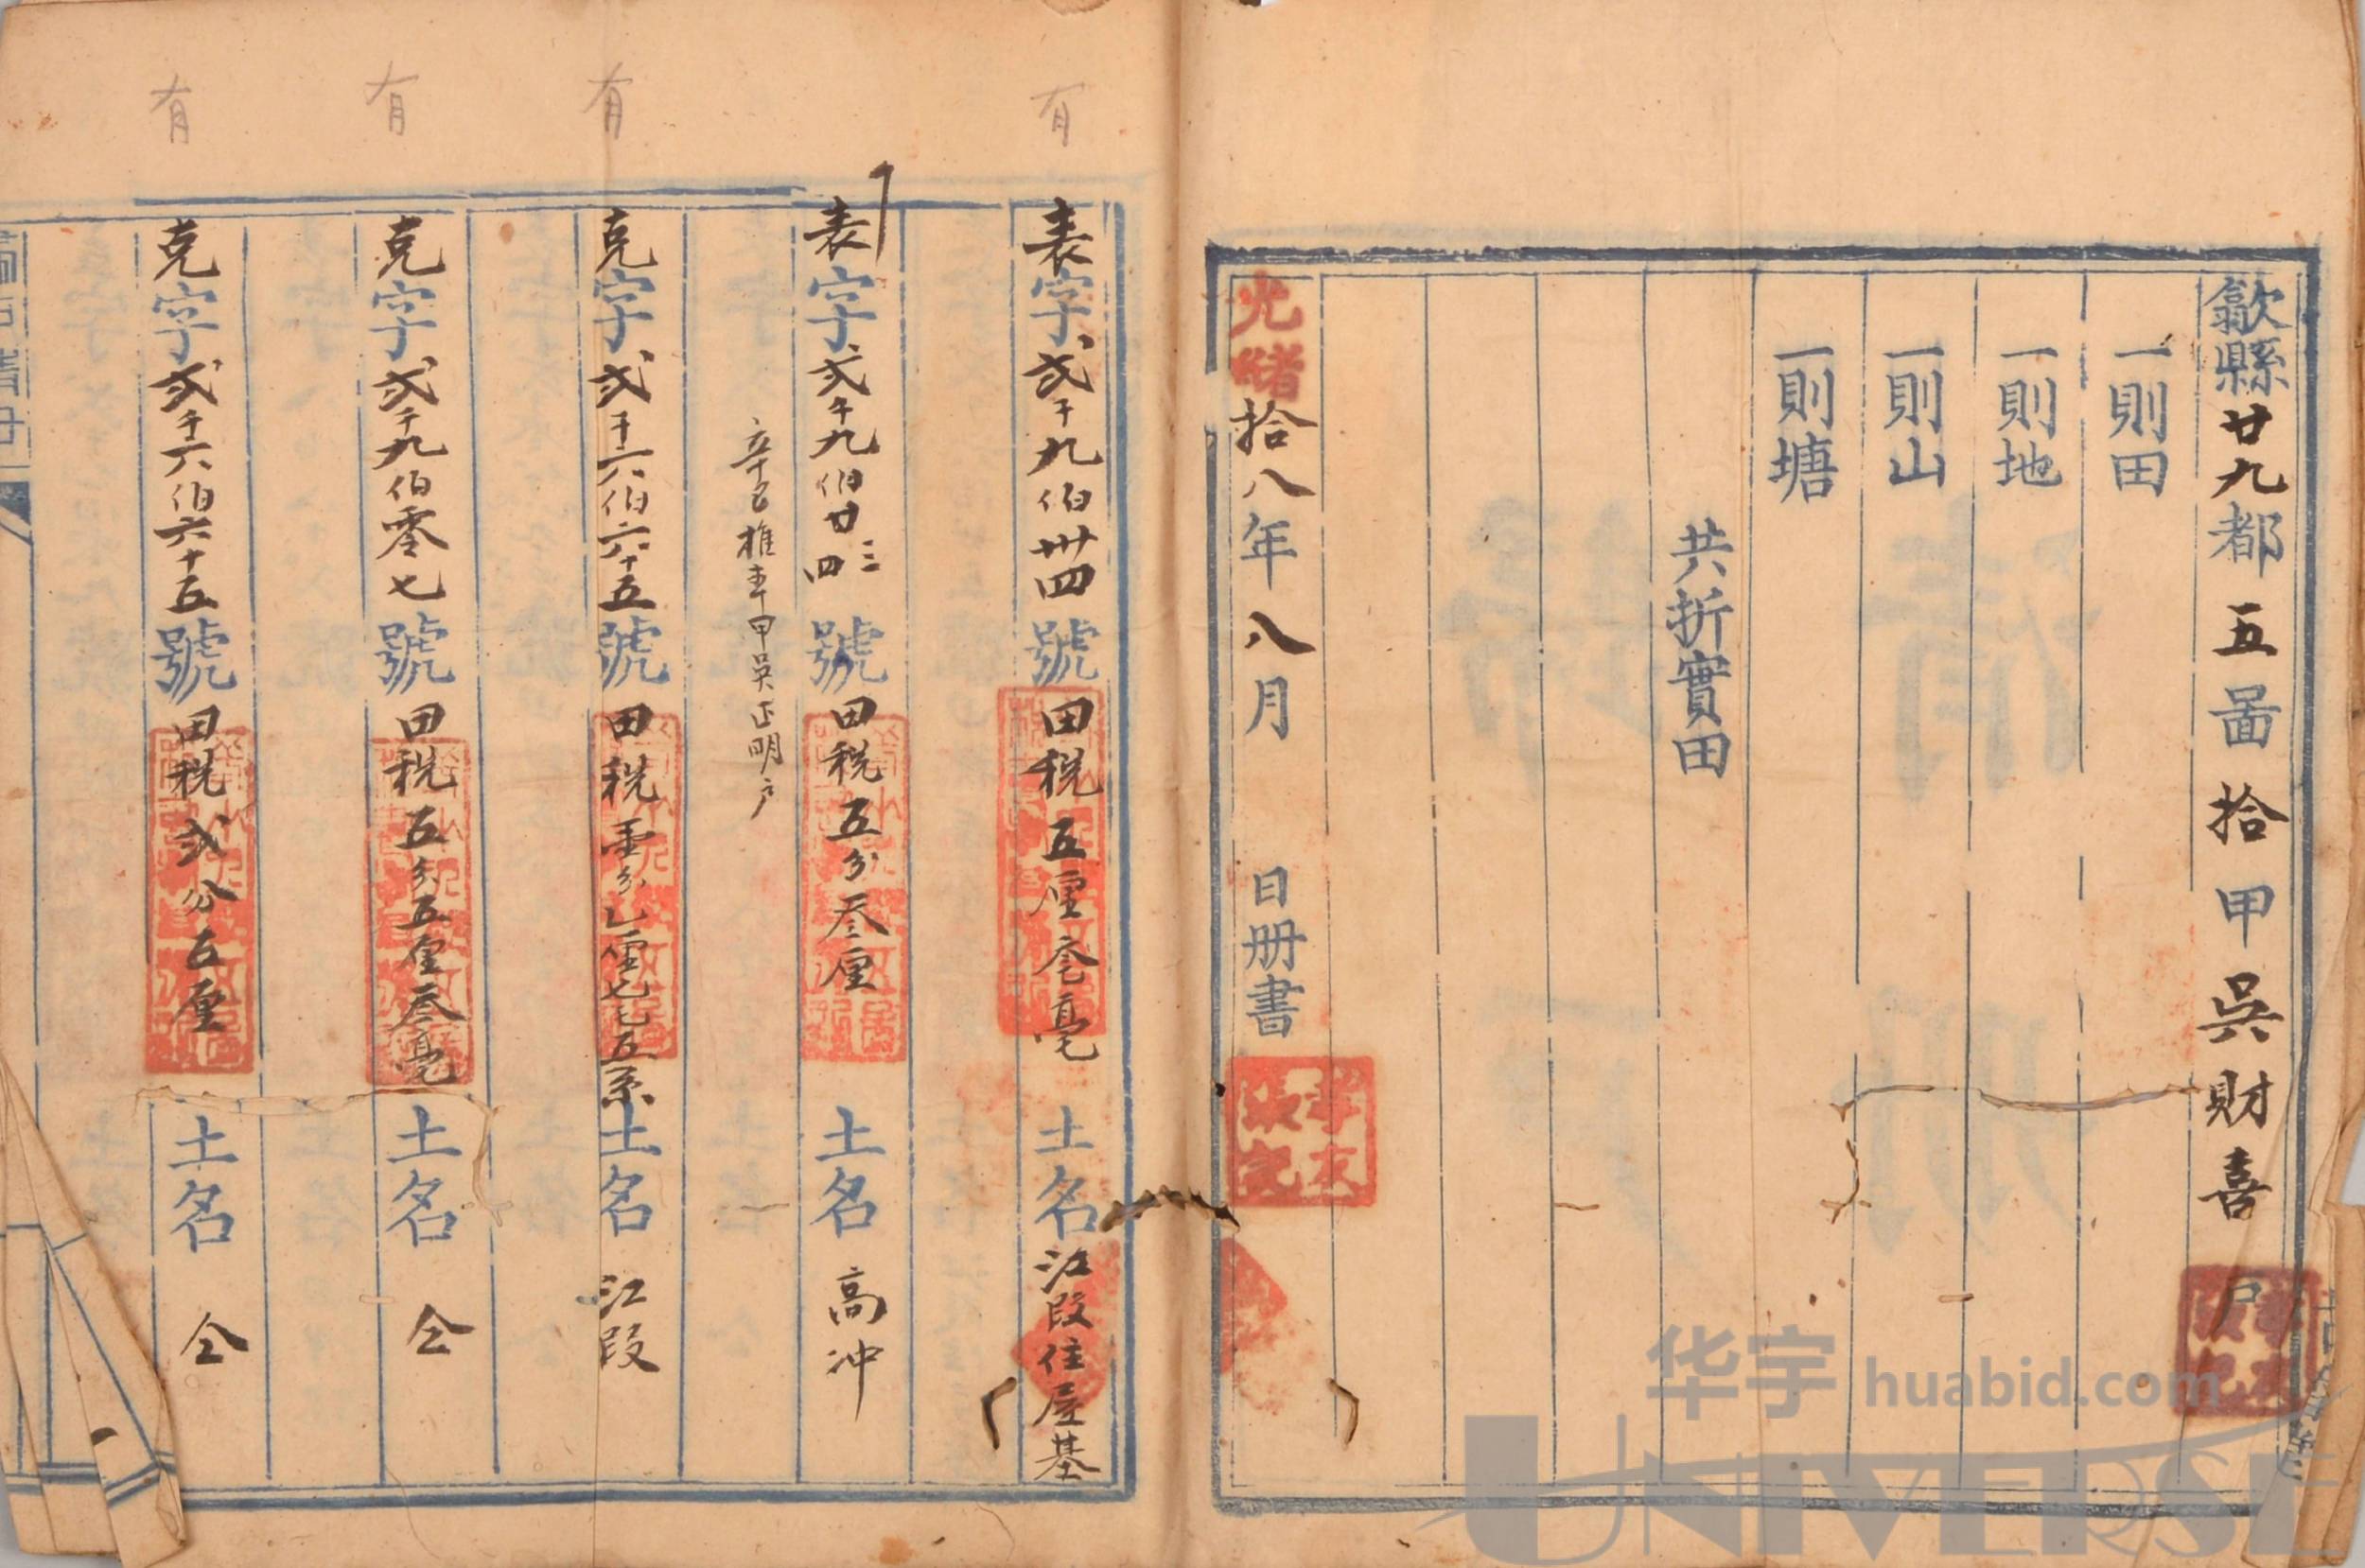 歙縣廿九都五啚拾甲吳財喜戶
一則田
一則地
一則山
一則塘
共折實田
光緒拾八年八月 日册書
有
表字弍千九伯卅四號田稅五厘叁毫 土名 江段住屋基
表字弍千九伯廿三四號田稅五分叁厘 土名 高冲
辛巳推本甲吳正明户
有
克字弍千六伯六十五號田稅 分乙厘七毛五系土名 江段
有
克字弍千九伯零七號田稅五分五厘叁毫 土名 仝
有
克字弍千六伯六十五號田稅弍分五厘 土名 仝
华宇 huabid.com
UNIVERSE